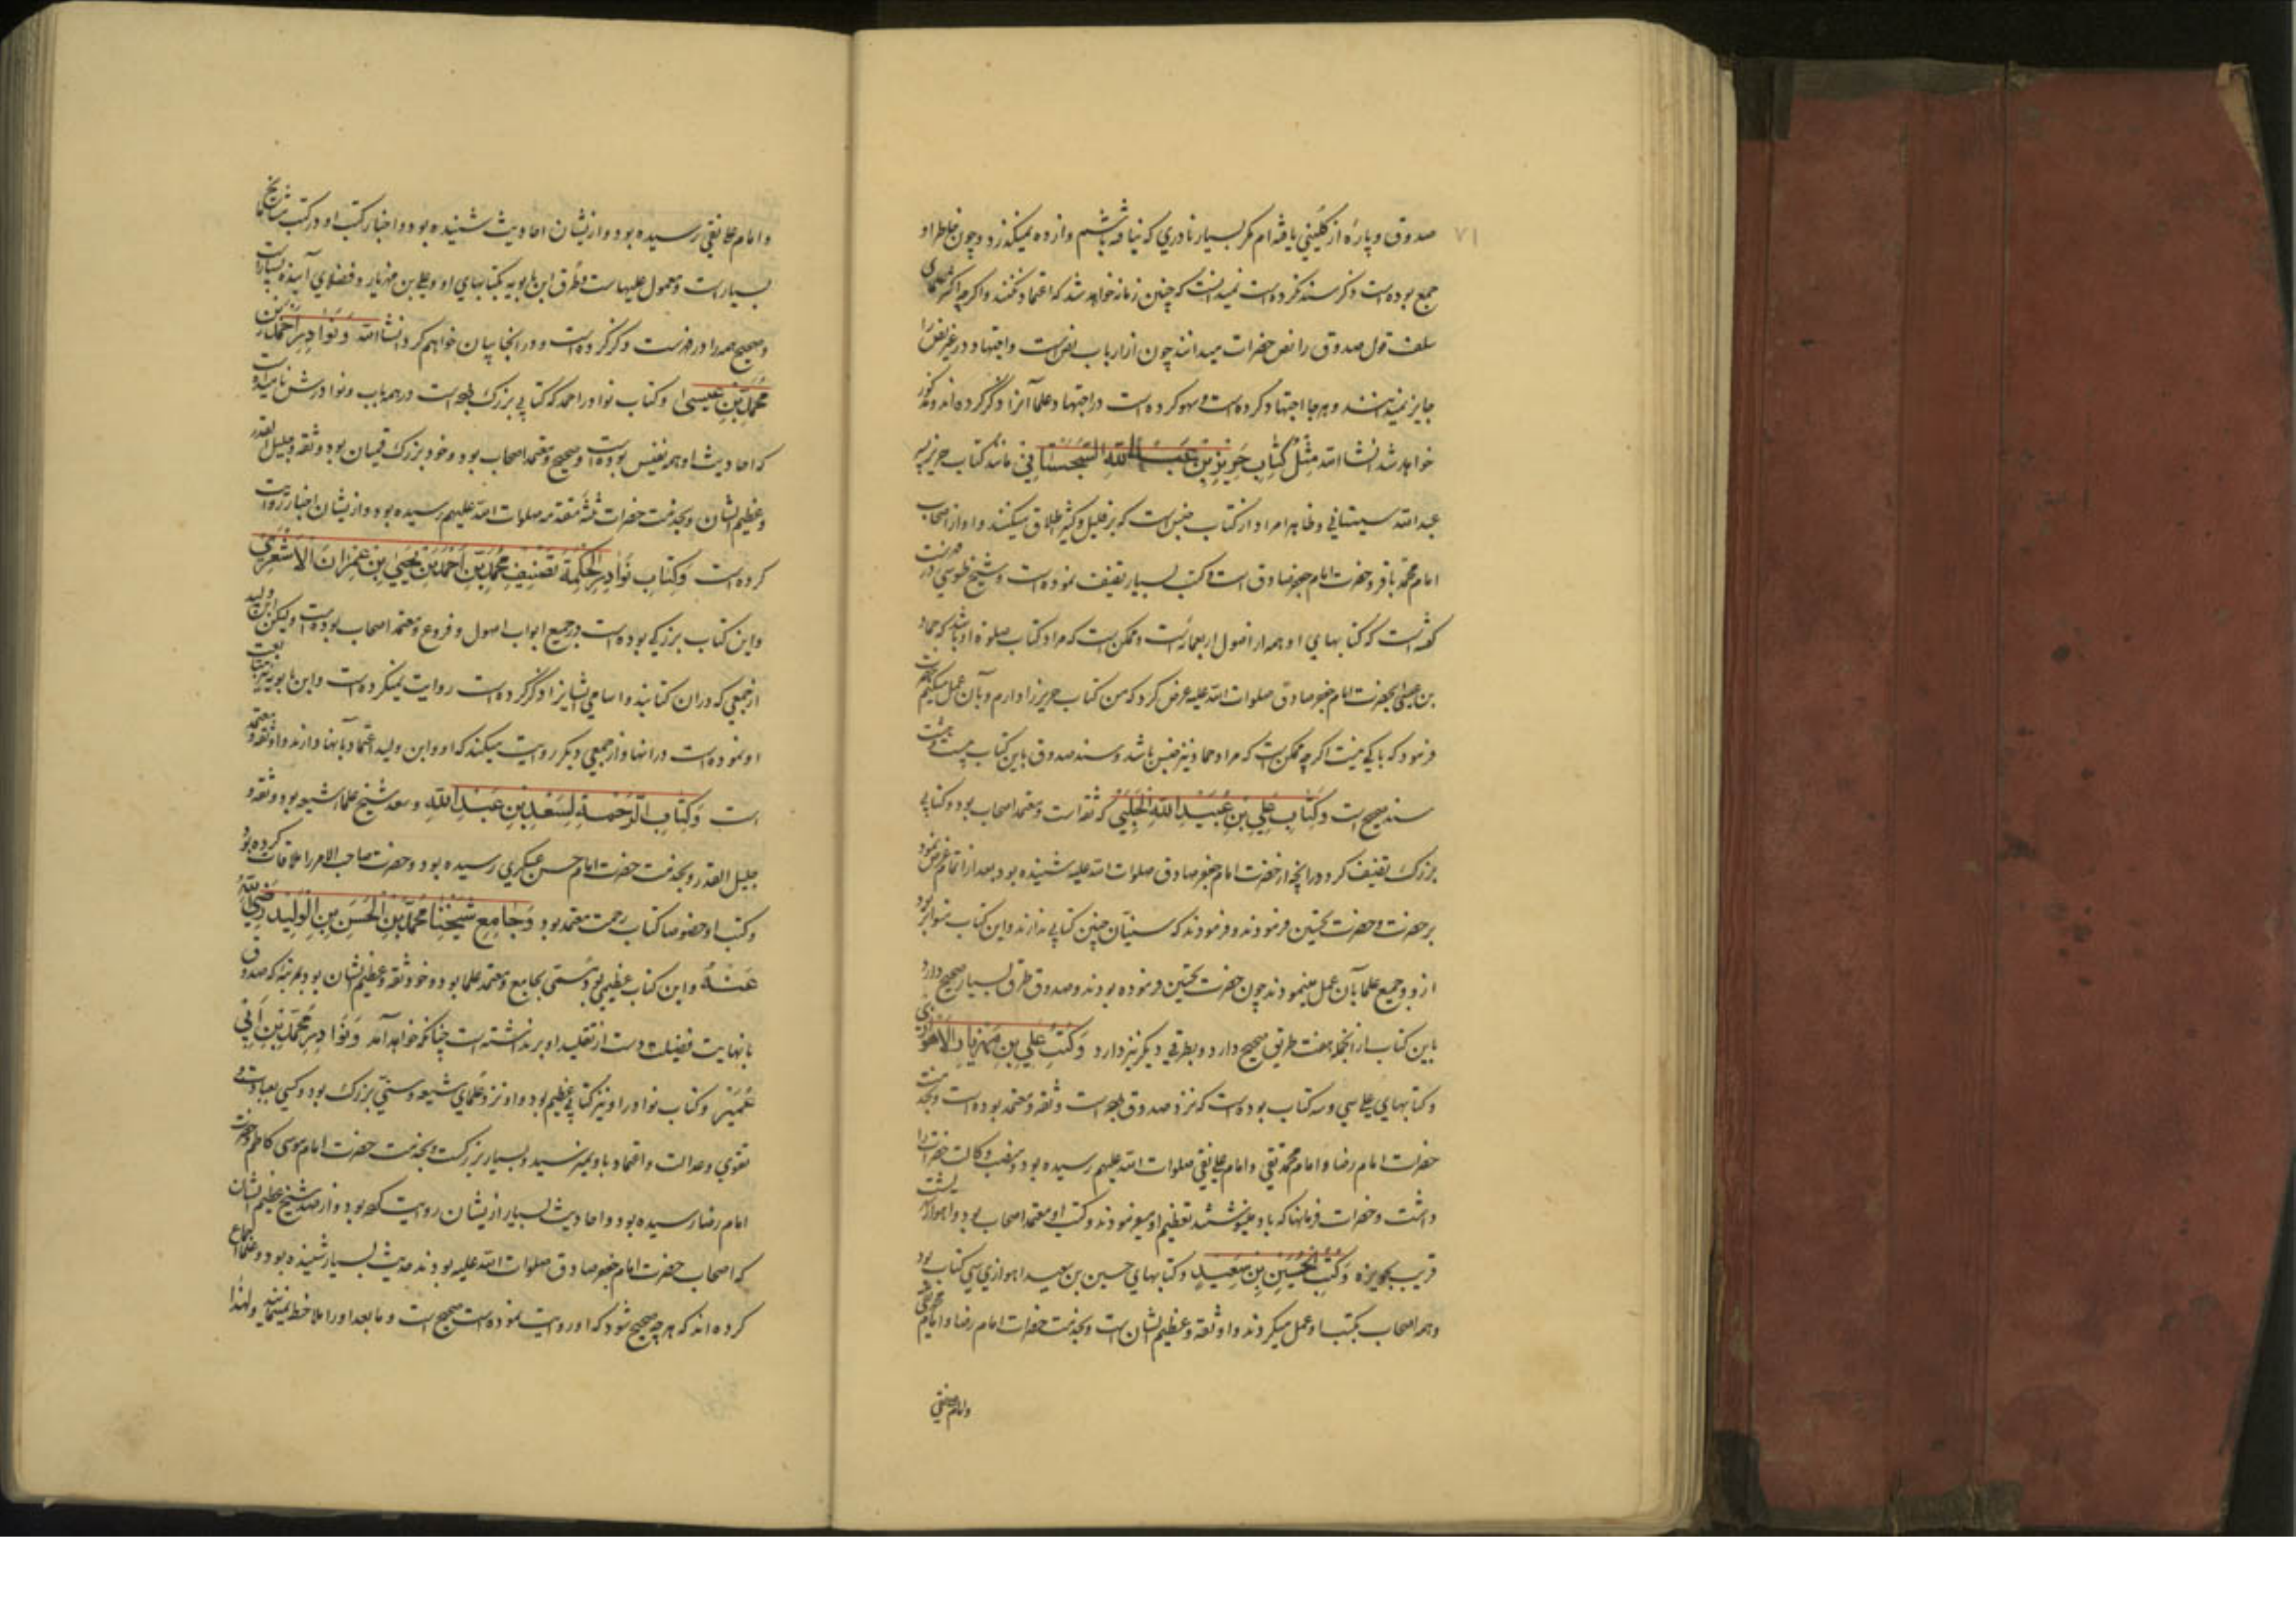 ۷۱
صدوق و پارهٔ از کلینی یافته‌ام مکر بسیار نادری که نیافته باشیم و از ده نمیکذرد و چون خاطر او
جمع بوده است ذکر سند نکرده است نمیدانست که چنین زمانه خواهد شد که اعتماد نکنند و اکرچه اکثر علمای
سلف قول صدوق را نص حضرات میدانند چون از ارباب نص است و اجتهاد در غیر نص را
جایز نمیدانند و هرجا اجتهاد کرده است و سهو کرده است در اجتهاد علما آنرا ذکر کرده‌اند و مذکور
خواهد شد انشاالله مِثْلُ کِتابِ حَرِیزِ بْنِ عَبْدِ اللّٰهِ السَّجِسْتانِی مانند کتاب حریز پسر
عبدالله سیستانی و ظاهرا مراد از کتاب جنس است که بر قلیل و کثیر اطلاق میکنند و او از اصحاب
امام محمد باقر و حضرت امام جعفر صادق است و کتب بسیار تصنیف نموده است و شیخ طوسی در فهرست
کفته است که کتابهای او همه از اصول اربعمائه است و ممکن است که مراد کتاب صلوة او باشد که حماد
بن عیسی بحضرت امام جعفر صادق صلوات الله علیه عرض کرد که من کتاب حریز را دارم و بآن عمل میکنم حضرت
فرمود که باکی نیست اکرچه ممکن است که مراد حماد نیز جنس باشد و سند صدوق باین کتاب بیست و هشت
سند صحیح است وَ کِتابِ عُبَیْدِ اللّٰهِ بْنِ عَلِی الْحَلَبِی که ثقه است و معتمد اصحاب بود و کتابی
بزرک تصنیف کرد در آنچه از حضرت امام جعفر صادق صلوات الله علیه شنیده بود بعد از اتمام عرض نمود
بر حضرت و حضرت تحسین فرمودند و فرمودند که سنیان چنین کتابی ندارند و این کتاب متواتر بود
ازو و جمیع علما بآن عمل مینمودند چون حضرت تحسین فرموده بودند و صدوق طرق بسیار صحیح دارد
باین کتاب از انجمله هفت طریق صحیح دارد و بطرقی دیکر نیز دارد وَ کُتُبِ عَلِیِ بْنِ مَهْزِیارَ الْاَهْوازِی
و کتابهای علی سی و سه کتاب بوده است که نزد صدوق بوده است و ثقه و معتمد بوده است و بخدمت
حضرات امام رضا و امام محمد تقی و امام علی نقی صلوات الله علیهم رسیده بود و منصب وکالت حضرات را
داشت و حضرات فرمانها که باو مینوشتند تعظیم او میفرمودند و کتب او معتمد اصحاب بود و اهواز
قریب بحویزه وَ کُتُبِ الْحُسَیْنِ بْنِ سَعِیدٍ و کتابهای حسین بن سعید اهوازی سی کتاب بود
و همه اصحاب بکتب او عمل میکردند و او ثقه و عظیم الشان است و بخدمت حضرات امام رضا و امام محمد تقی
و امام علی نقی رسیده بود و ازیشان احادیث شنیده بود و اخبار کتب او در کتب مشایخ ما
بسیار است و معمول علیهاست و طرق ابن بابویه بکتابهای او و علی بن مهزیار و فضلای آینده بسیار است
و صحیح همه را در فهرست ذکر کرده است و در انجا بیان خواهیم کرد انشاالله وَ نَوادِرِ اَحْمَدَ بْنِ
مُحَمَّدِ بْنِ عِیسی و کتاب نوادر احمد که کتابی بزرک بوده است در همه باب و نوادرش نامیده است
که احادیث او همه نفیس بوده است و صحیح و معتمد اصحاب بود و خود بزرک قمیان بود و ثقه و جلیل القدر
و عظیم الشان و بخدمت حضرات ثلثهٔ متقدمه صلوات الله علیهم رسیده بود و ازیشان اخبار روایت
کرده است وَ کِتابِ نَوادِرِ الْحِکْمَةِ تَصْنِیفِ مُحَمَّدِ بْنِ اَحْمَدَ بْنِ یَحْیَی بْنِ عِمْرانَ الْاَشْعَرِی
و این کتاب بزرکی بوده است در جمیع ابواب اصول و فروع و معتمد اصحاب بوده است و لیکن ابن ولید
از جمعی که در ان کتابند و اسامی ایشانرا ذکر کرده است روایت نمیکرده است و ابن بابویه نیز متابعت
او نموده است در انها و از جمعی دیکر روایت میکند که او و ابن ولید اعتماد بآنها دارند و او ثقه و معتمد
است وَ کِتابِ الرَّحْمَةِ لِسَعْدِ بْنِ عَبْدِ اللّٰهِ و سعد شیخ علماء شیعه بود و ثقه و
جلیل القدر و بخدمت حضرت امام حسن عسکری رسیده بود و حضرت صاحب الامر را ملاقات کرده بود
و کتب او خصوصا کتاب رحمت معتمد بود وَ جامِعِ شَیْخِنا مُحَمَّدِ بْنِ الْحَسَنِ بْنِ الْوَلِیدِ رَضِیَ اللّٰهُ
عَنْهُ و این کتاب عظیمی بود مسمی بجامع و معتمد علما بود و خود ثقه و عظیم الشان بود بمرتبهٔ که صدوق
با نهایت فضیلت دست از تقلید او برنداشته است چنانکه خواهد آمد وَ نَوادِرِ مُحَمَّدِ بْنِ اَبِی
عُمَیْرٍ و کتاب نوادر او نیز کتابی عظیم بود و او نزد علمای شیعه و سنی بزرک بود و کسی بعبادت و
تقوی و عدالت و اعتماد باو نمیرسید و بسیار بزرکست و بخدمت حضرت امام موسی کاظم و حضرت
امام رضا رسیده بود و احادیث بسیار ازیشان روایت کرده بود و از صد شیخ عظیم الشان
که اصحاب حضرت امام جعفر صادق صلوات الله علیه بودند حدیث بسیار شنیده بود و علما اجماع
کرده‌اند که هرچه صحیح شود که او روایت نموده است صحیح است و ما بعد او را ملاحظه نمینمایند و لهذا